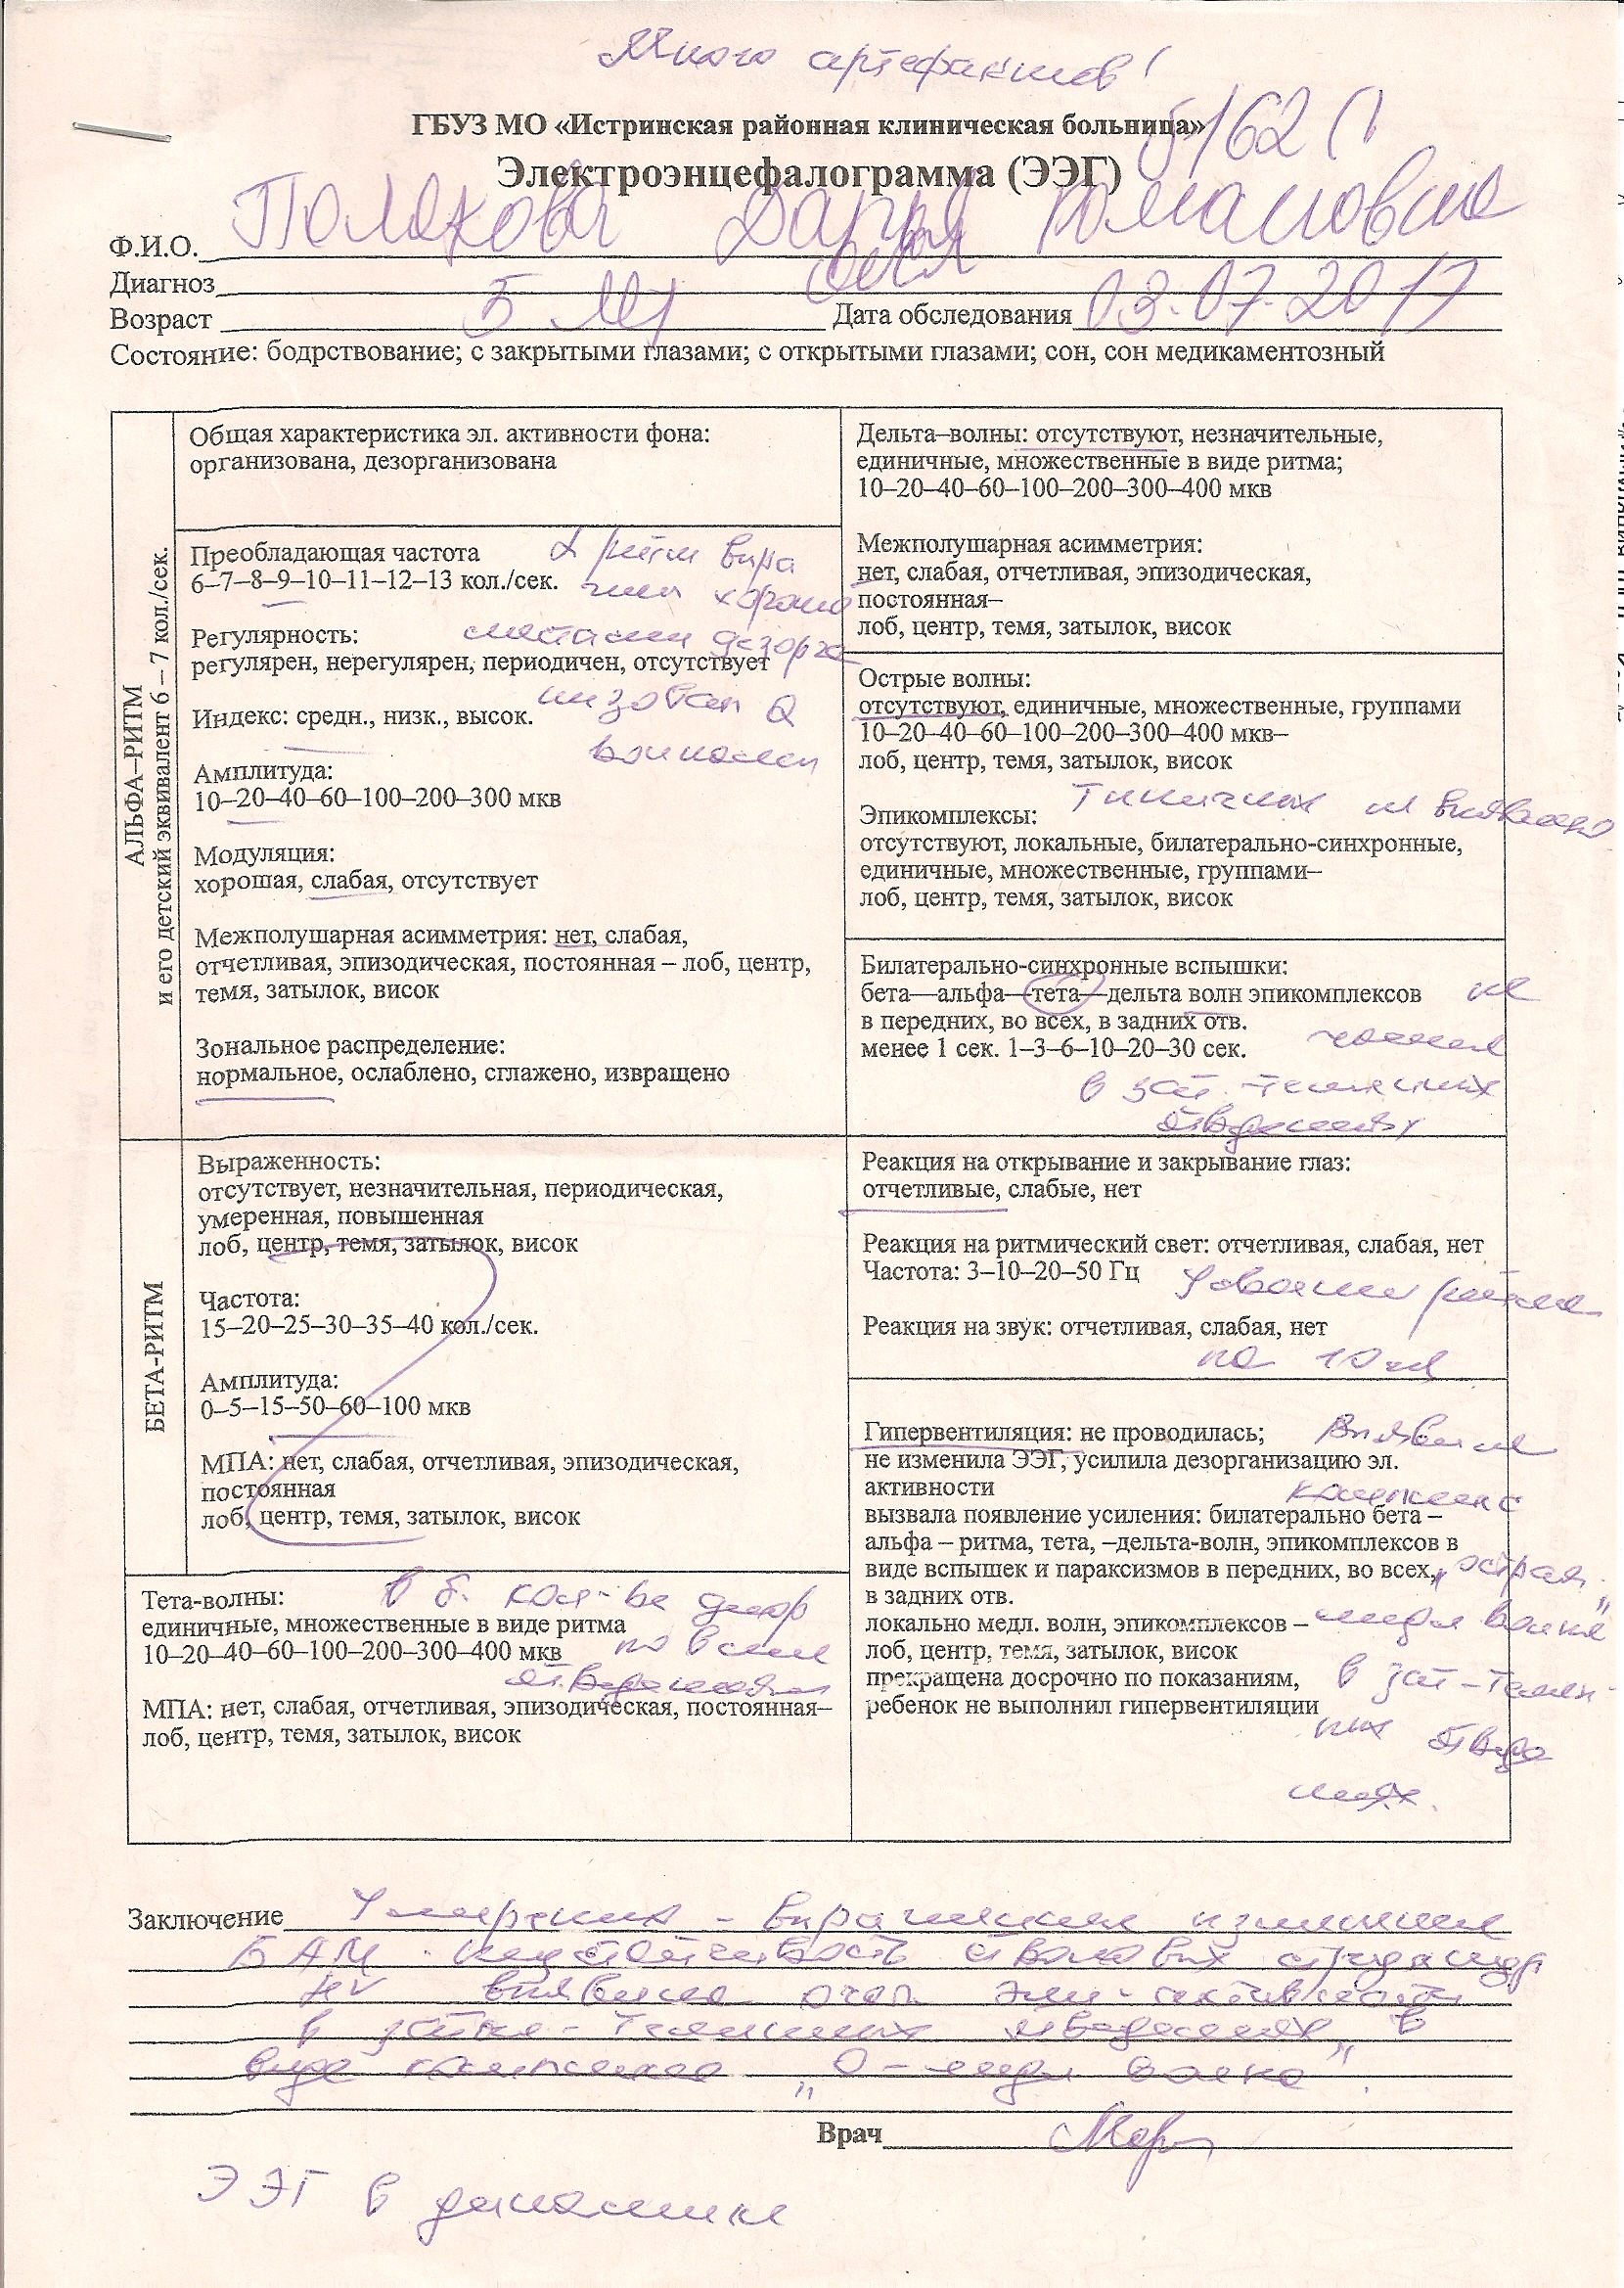 Много артефактов!
ГБУЗ МО «Истринская районная клиническая больница»
Электроэнцефалограмма (ЭЭГ)
Ф.И.О. Полякова Дарья Романовна
Диагноз
Возраст 5 Дата обследования 03.07.2017
Состояние: бодрствование; с закрытыми глазами; с открытыми глазами; сон, сон медикаментозный
АЛЬФА–РИТМ
и его детский эквивалент 6 – 7 кол./сек.
Общая характеристика эл. активности фона:
организована, дезорганизована
Преобладающая частота α ритм выра
6–7–8–9–10–11–12–13 кол./сек. жен хорошо
Регулярность: местами дезорга
регулярен, нерегулярен, периодичен, отсутствует
низован θ
Индекс: средн., низк., высок.
волнами
Амплитуда:
10–20–40–60–100–200–300 мкв
Модуляция:
хорошая, слабая, отсутствует
Межполушарная асимметрия: нет, слабая,
отчетливая, эпизодическая, постоянная – лоб, центр,
темя, затылок, висок
Зональное распределение:
нормальное, ослаблено, сглажено, извращено
БЕТА-РИТМ
Выраженность:
отсутствует, незначительная, периодическая,
умеренная, повышенная
лоб, центр, темя, затылок, висок
Частота:
15–20–25–30–35–40 кол./сек.
Амплитуда:
0–5–15–50–60–100 мкв
МПА: нет, слабая, отчетливая, эпизодическая,
постоянная
лоб, центр, темя, затылок, висок
Тета-волны: в б. кол-ве диф
единичные, множественные в виде ритма
10–20–40–60–100–200–300–400 мкв по всем
отведениям
МПА: нет, слабая, отчетливая, эпизодическая, постоянная–
лоб, центр, темя, затылок, висок
Дельта–волны: отсутствуют, незначительные,
единичные, множественные в виде ритма;
10–20–40–60–100–200–300–400 мкв
Межполушарная асимметрия:
нет, слабая, отчетливая, эпизодическая,
постоянная–
лоб, центр, темя, затылок, висок
Острые волны:
отсутствуют, единичные, множественные, группами
10–20–40–60–100–200–300–400 мкв–
лоб, центр, темя, затылок, висок
Типичных не выявлено
Эпикомплексы:
отсутствуют, локальные, билатерально-синхронные,
единичные, множественные, группами–
лоб, центр, темя, затылок, висок
Билатерально-синхронные вспышки:
бета—альфа—тета—дельта волн эпикомплексов не
в передних, во всех, в задних отв.
менее 1 сек. 1–3–6–10–20–30 сек.
в зат. теменных
отведениях
Реакция на открывание и закрывание глаз:
отчетливые, слабые, нет
Реакция на ритмический свет: отчетливая, слабая, нет
Частота: 3–10–20–50 Гц Усвоение ритма
Реакция на звук: отчетливая, слабая, нет
на 10 гц
Гипервентиляция: не проводилась; Выявила
не изменила ЭЭГ, усилила дезорганизацию эл.
активности комплекс
вызвала появление усиления: билатерально бета –
альфа – ритма, тета, –дельта-волн, эпикомплексов в
виде вспышек и параксизмов в передних, во всех, „острая
в задних отв.
локально медл. волн, эпикомплексов – медл волна"
лоб, центр, темя, затылок, висок
прекращена досрочно по показаниям, в зат-темен-
ребенок не выполнил гипервентиляции ных отведе
ниях.
Заключение Умеренно - выраженные изменения
БАМ. неустойчивость стволовых структур
HV выявила очаг эпи-активности
в затыл-теменных отведениях в
виде комплексов „О-медл волна".
Врач
ЭЭГ в динамике